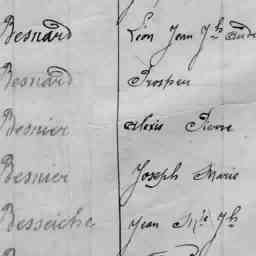 Besnard Léon Jean Jh André
Besnard Prosper
Besnier Alexis Pierre
Besnier Joseph Marie
Besseiche Jean Mie Jh